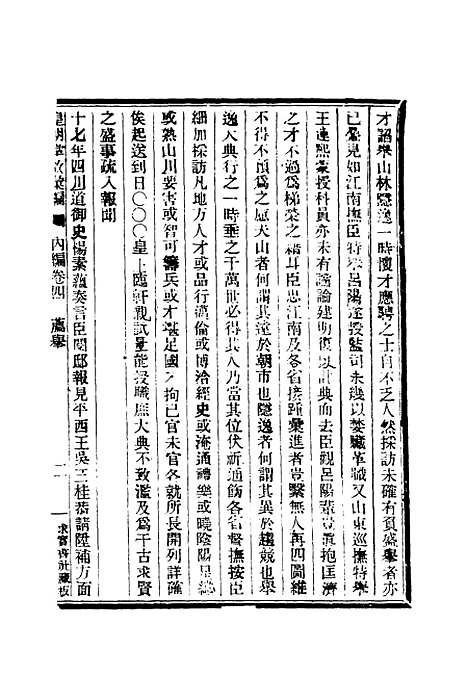 才詔舉山林隱逸一時懷才應聘之士自不乏人然採訪未確有負盛舉者亦
已叠見如江南撫臣特舉呂陽遂授監司未幾以婪贓革職又山東巡撫特舉
王連熙蒙授科員亦未有讜論建明復以計典而去臣觀呂陽輩豈眞抱匡濟
之才不過爲梯榮之藉耳臣思江南及各省接踵彙進者豈繄無人再四圖維
不得不預爲之慮夫山者何謂其遠於朝市也隱逸者何謂其異於趨競也舉
逸大典行之一時垂之千萬世必得其人乃當其位伏祈通飭各省督撫按臣
細加採訪凡地方人才或品行濔倫或博洽經史或淹通禮樂或曉陰陽星
或熟山川要害或智可籌兵或才堪足國之拘已官未官各就所長開列詳確
俟起送到日〇〇〇皇上臨軒親試量能授職庶大典不致濫及爲千古求賢
之盛事疏入報聞
十七年四川道御史楊素蘊奏言臣閱邸報見平西王吳三桂恭請陞補方面
皇朝掌故彙編 內編卷四 薦舉 二 求實書社藏板